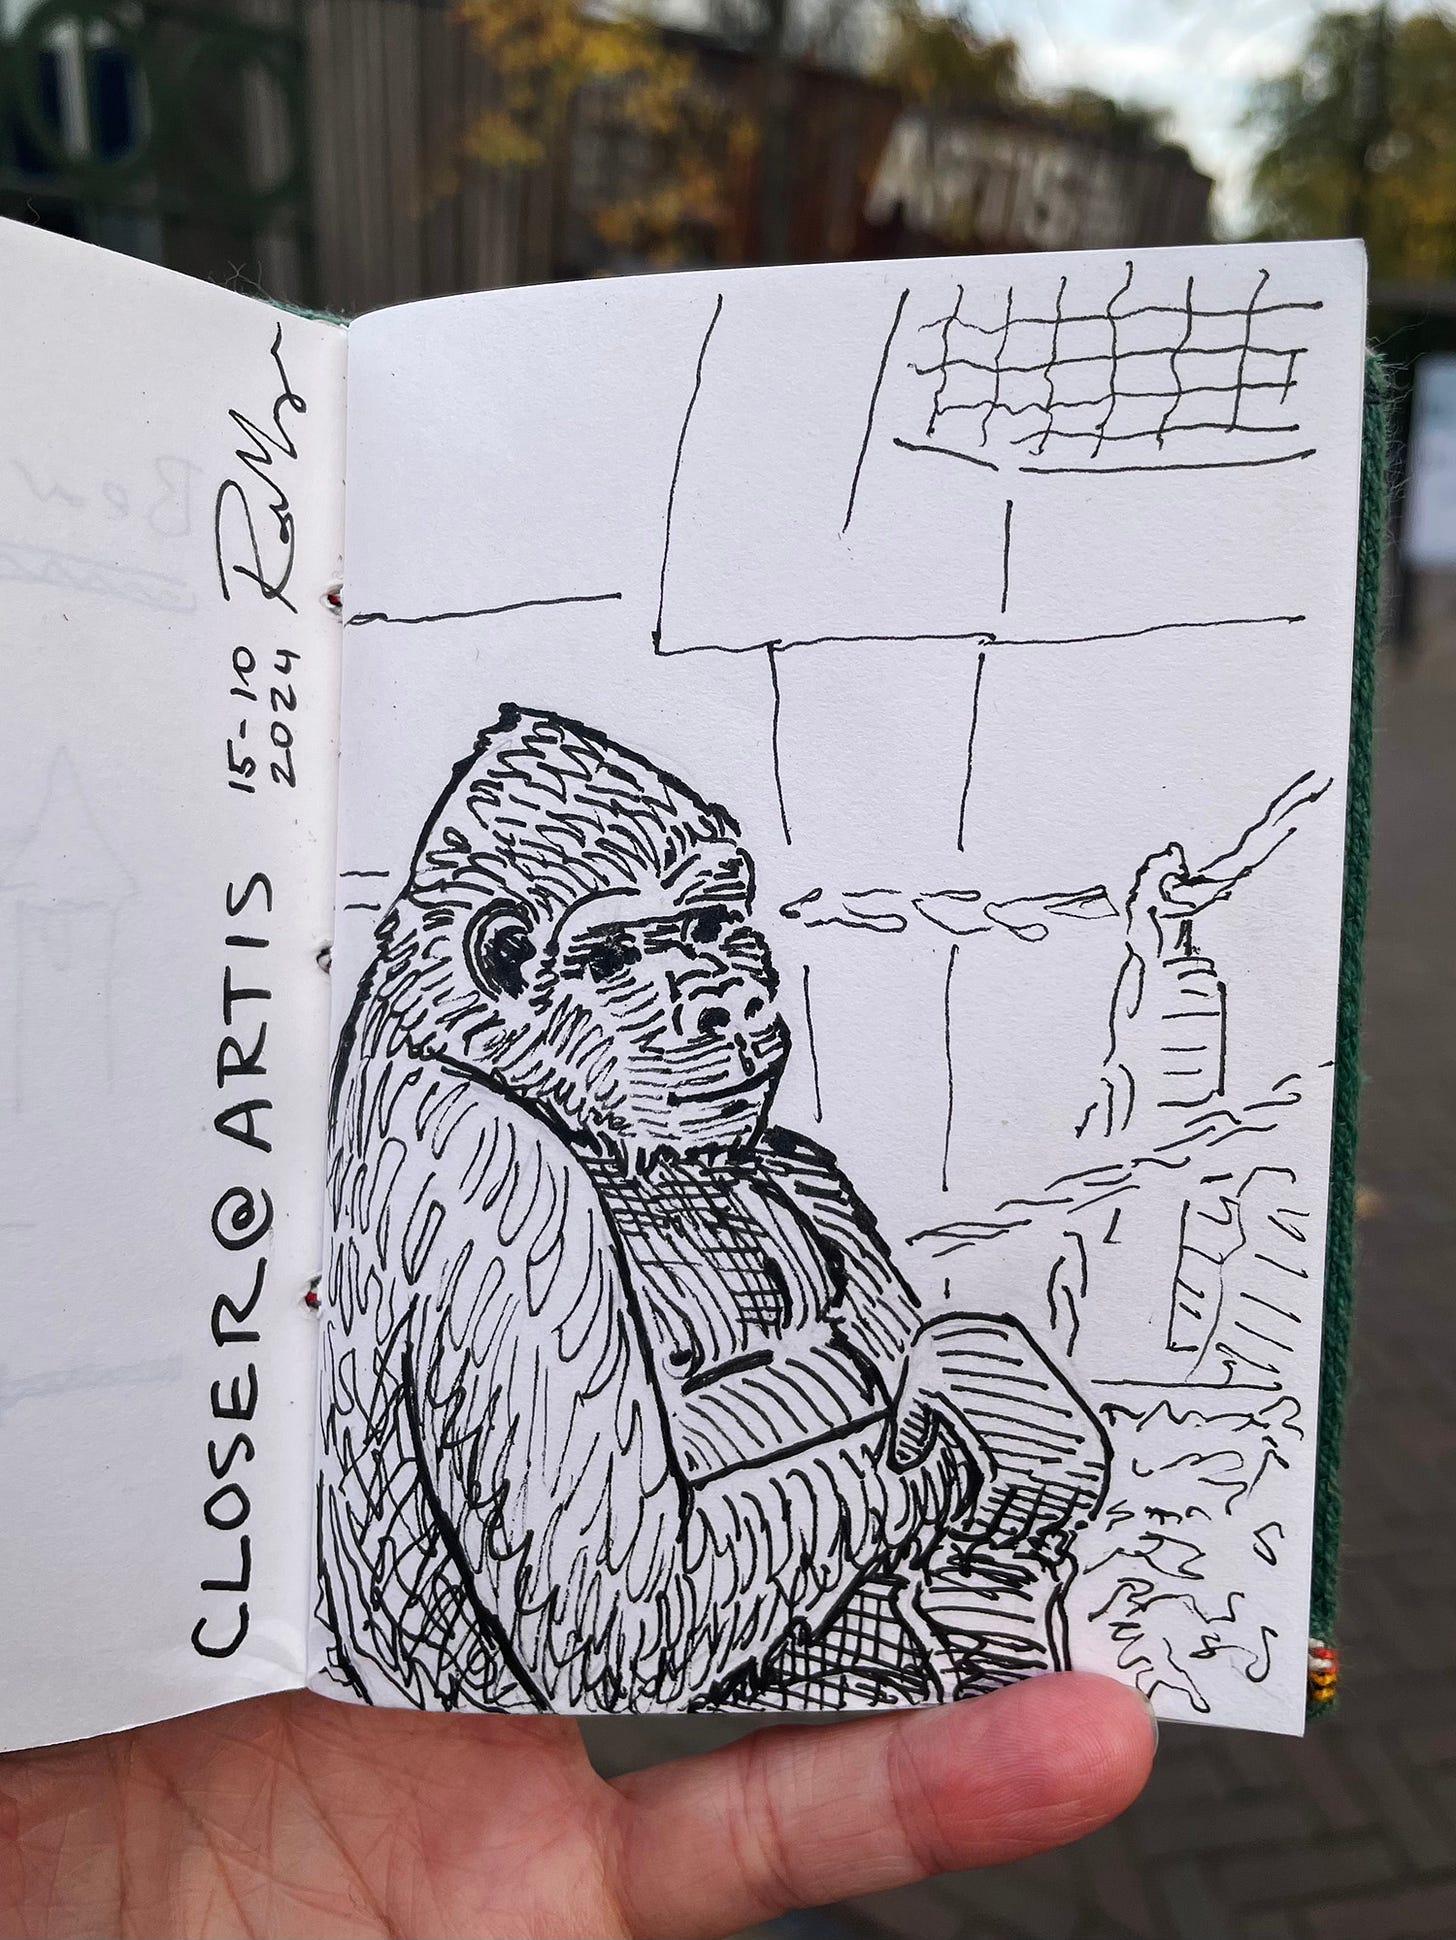 CLOSER@ARTIS
15-10
2024
ARTIS